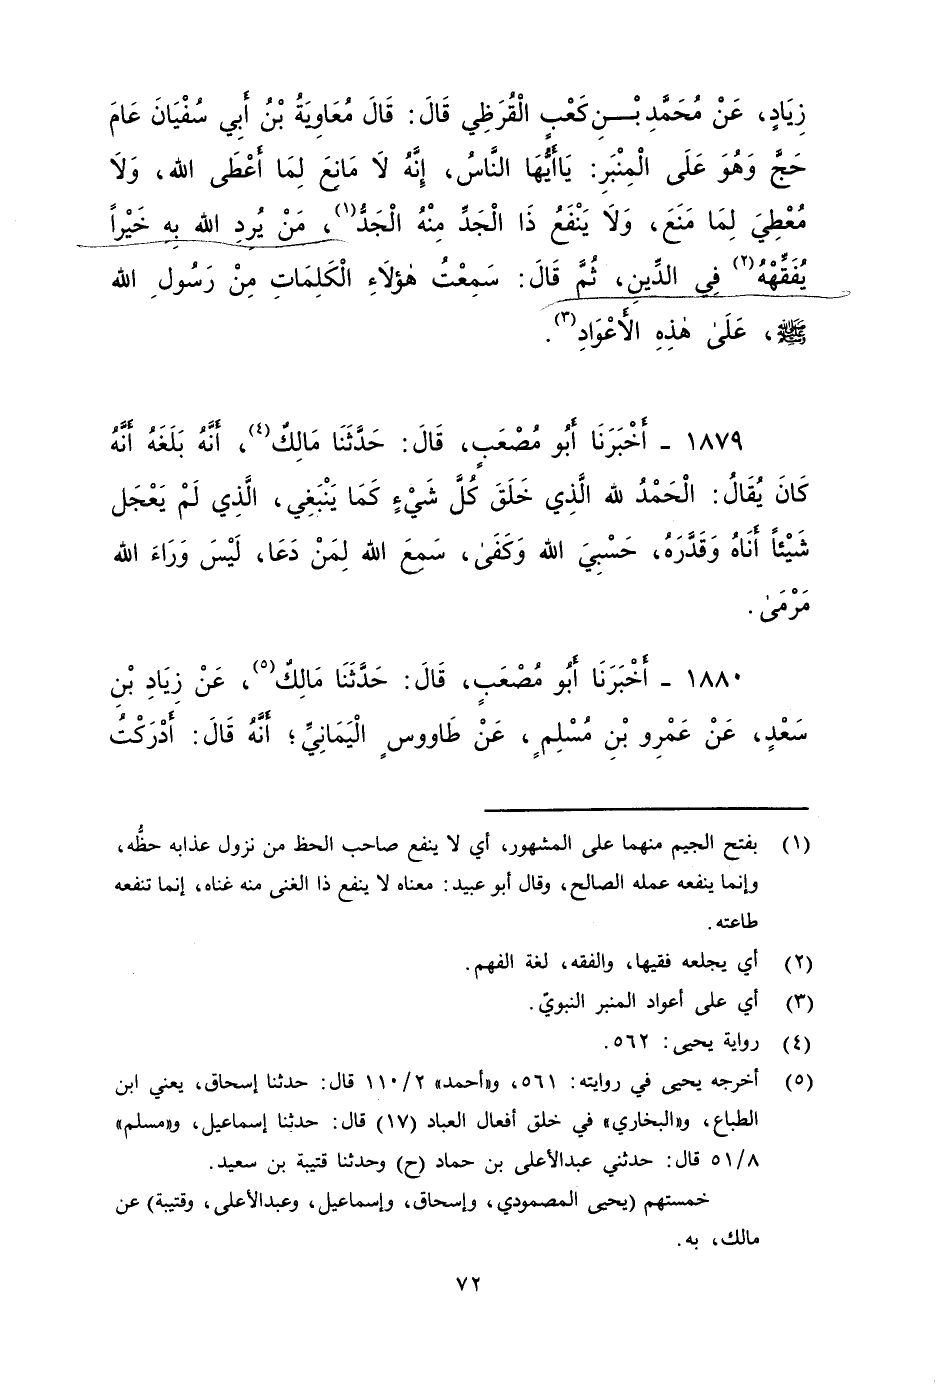 زِيَادٍ، عَنْ مُحَمَّدِ بْــنِ كَعْبٍ الْقُرَظِي قَالَ: قَالَ مُعَاوِيَةُ بْنُ أَبي سُفْيَانَ عَامَ
حَجَّ وَهُوَ عَلَى الْمِنْبَرِ: يَاأَيُّهَا النَّاسُ، إِنَّهُ لَا مَانِعَ لِمَا أَعْطَى الله، وَلَا
مُعْطِيَ لِمَا مَنَعَ، وَلَا يَنْفَعُ ذَا الْجَدِّ مِنْهُ الْجَدُّ(١)، مَنْ يُرِدِ الله بِهِ خَيْراً
يُفَقِّهْهُ(٢) فِي الدِّينِ، ثُمَّ قَالَ: سَمِعْتُ هٰؤلَاءِ الْكَلِمَاتِ مِنْ رَسُولِ الله
ﷺ، عَلَىٰ هٰذِهِ الأَعْوَادِ(٣).
١٨٧٩ ـ أَخْبَرَنَا أَبُو مُصْعَبٍ، قَالَ: حَدَّثَنَا مَالِكٌ(٤)، أَنَّهُ بَلَغَهُ أَنَّهُ
كَانَ يُقَالُ: الْحَمْدُ لله الَّذِي خَلَقَ كُلَّ شَيْءٍ كَمَا يَنْبَغِي، الَّذِي لَمْ يَعْجَل
شَيْئاً أَنَاهُ وَقَدَّرَهُ، حَسْبِيَ الله وَكَفَىٰ، سَمِعَ الله لِمَنْ دَعَا، لَيْسَ وَرَاءَ الله
مَرْمَىٰ.
١٨٨٠ ـ أَخْبَرَنَا أَبُو مُصْعَبٍ، قَالَ: حَدَّثَنَا مَالِكٌ(٥)، عَنْ زِيَادِ بْنِ
سَعْدٍ، عَنْ عَمْرِو بْنِ مُسْلِمٍ، عَنْ طَاووسٍ الْيَمَانِيِّ؛ أَنَّهُ قَالَ: أَدْرَكْتُ
(١) بفتح الجيم منهما على المشهور، أي لا ينفع صاحب الحظ من نزول عذابه حظُّه،
وإنما ينفعه عمله الصالح، وقال أبو عبيد: معناه لا ينفع ذا الغنى منه غناه، إنما تنفعه
طاعته.
(٢) أي يجلعه فقيها، والفقه، لغة الفهم.
(٣) أي على أعواد المنبر النبويّ.
(٤) رواية يحيى: ٥٦٢.
(٥) أخرجه يحيى في روايته: ٥٦١، و«أحمد» ٢/١١٠ قال: حدثنا إسحاق، يعني ابن
الطباع، و«البخاري» في خلق أفعال العباد (١٧) قال: حدثنا إسماعيل، و«مسلم»
٨/٥١ قال: حدثني عبدالأعلى بن حماد (ح) وحدثنا قتيبة بن سعيد.
خمستهم (يحيى المصمودي، وإسحاق، وإسماعيل، وعبدالأعلى، وقتيبة) عن
مالك، به.
٧٢